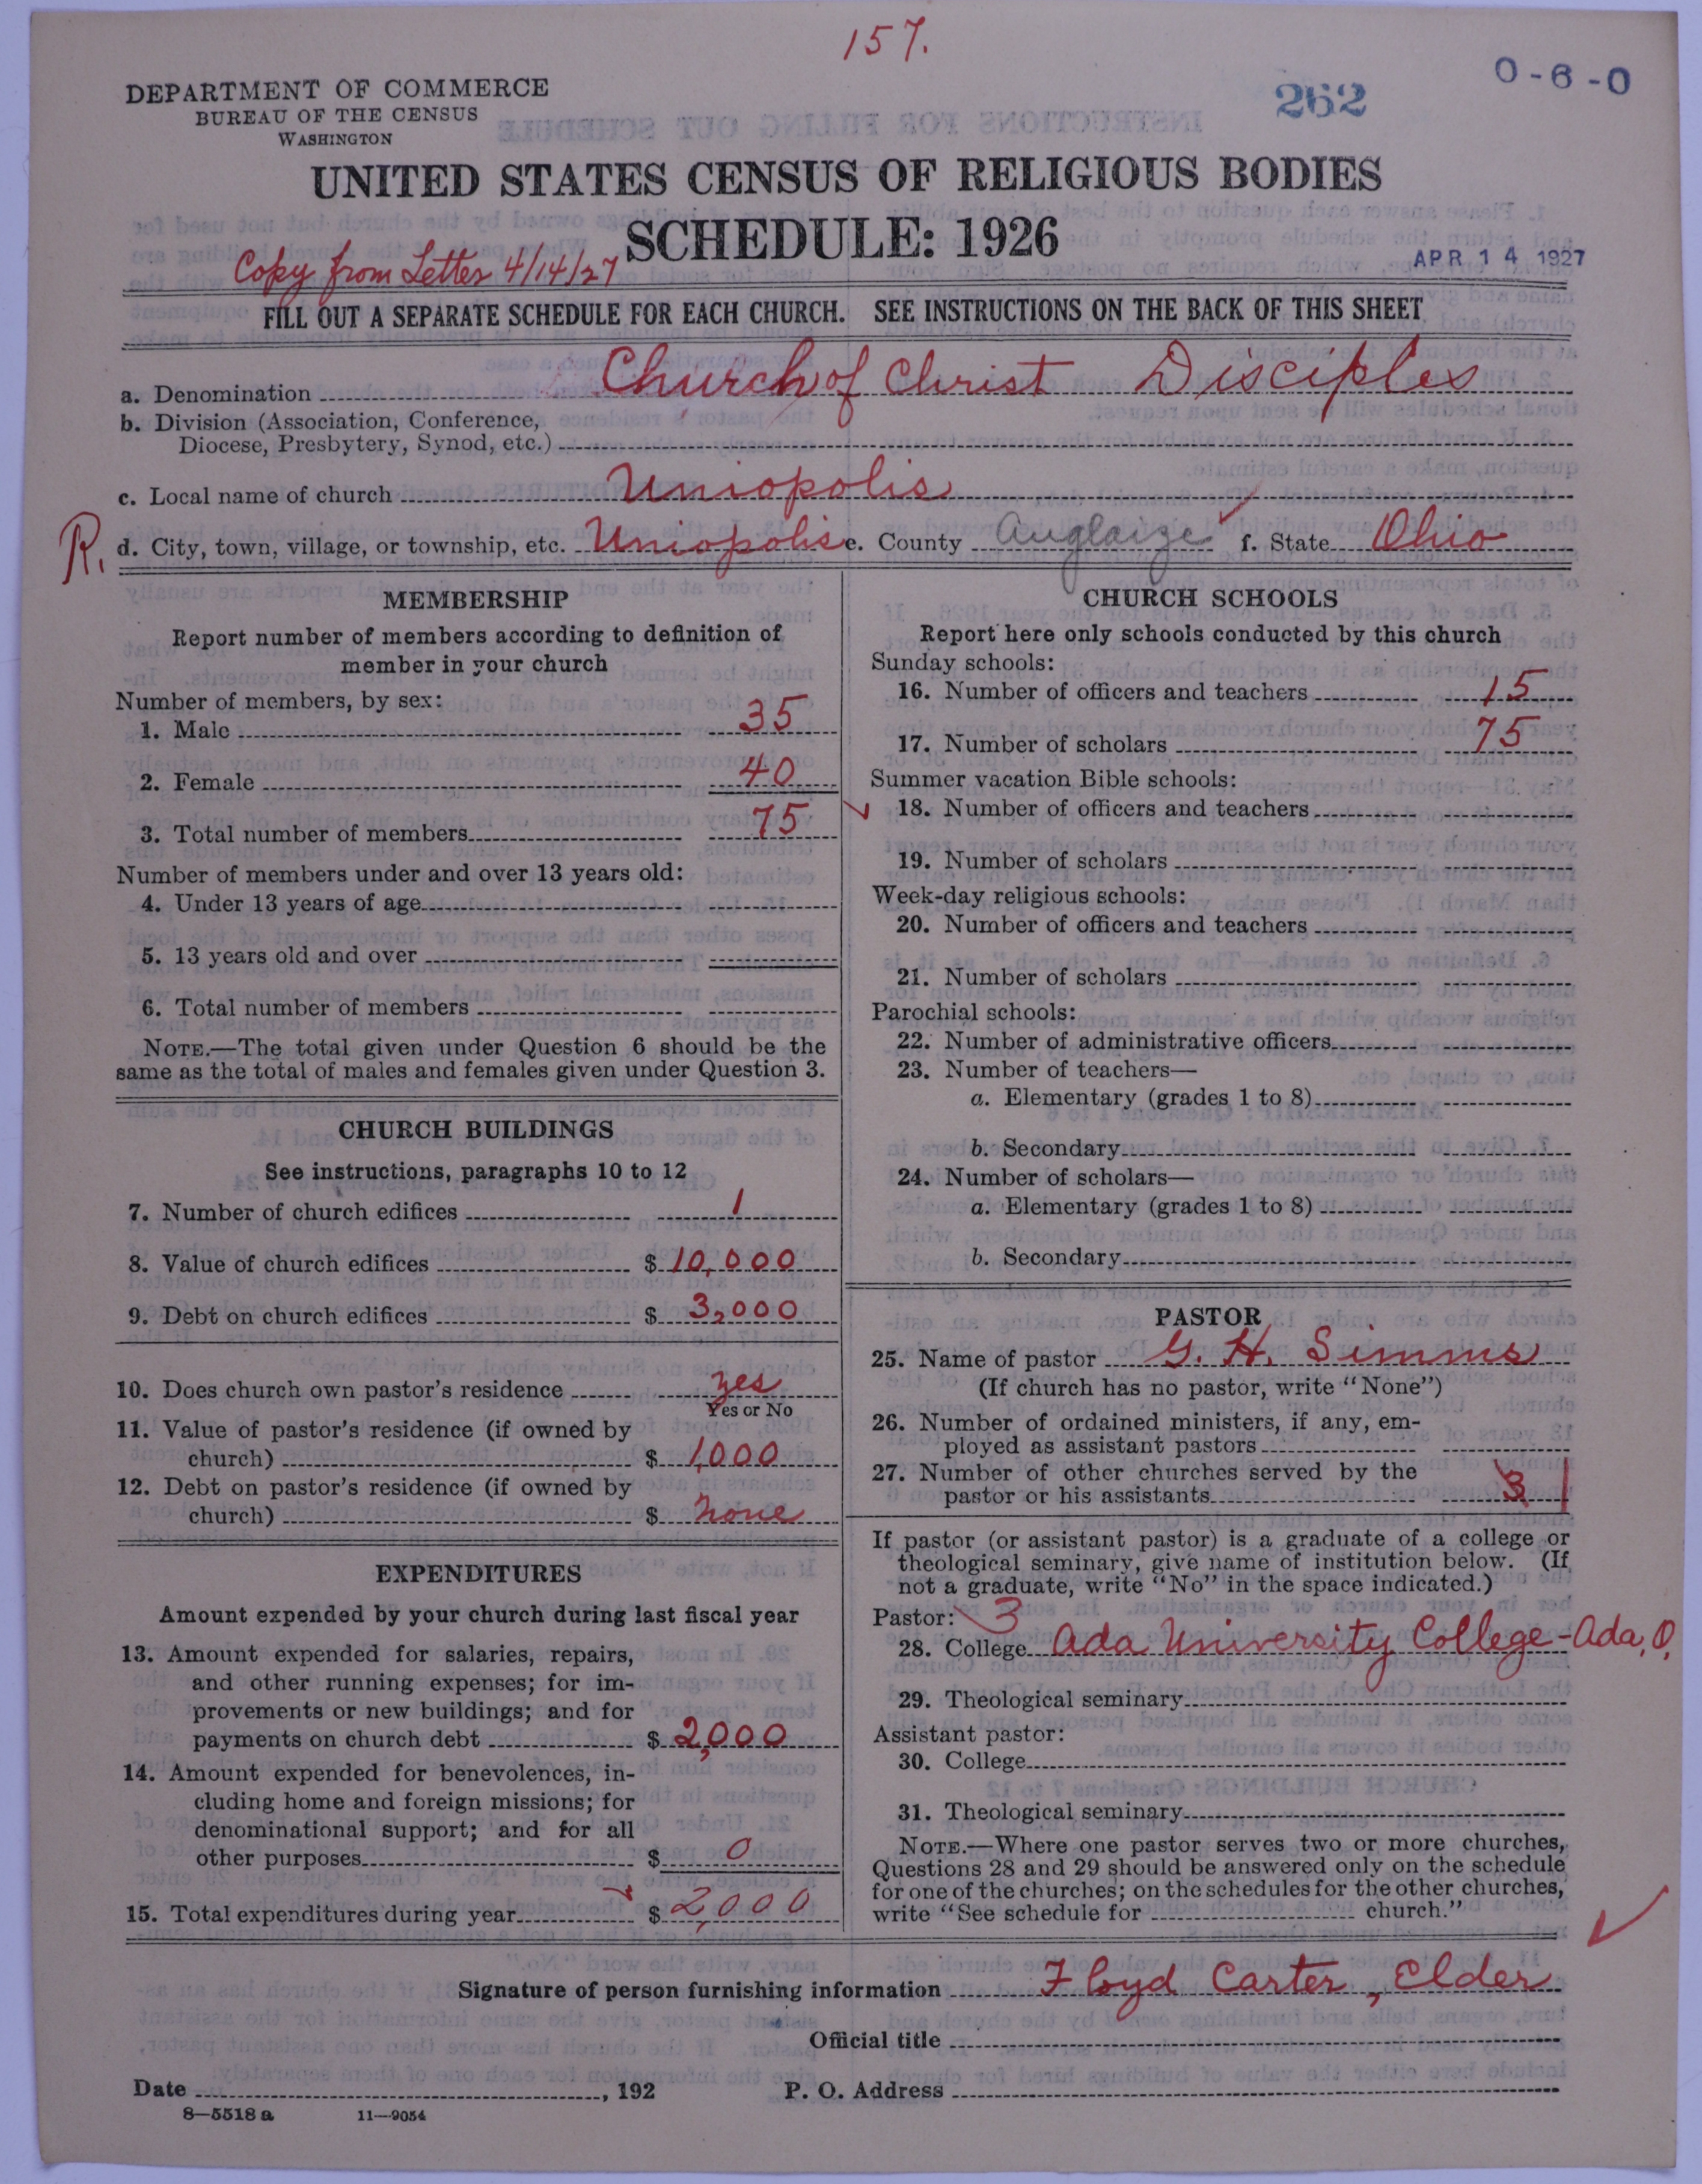 157.
DEPARTMENT OF COMMERCE
BUREAU OF THE CENSUS
WASHINGTON
262
0-6-0
UNITED STATES CENSUS OF RELIGIOUS BODIES
SCHEDULE: 1926
Copy from Letter 4/14/27
APR 14 1927
FILL OUT A SEPARATE SCHEDULE FOR EACH CHURCH. SEE INSTRUCTIONS ON THE BACK OF THIS SHEET
a. Denomination Church of Christ Disciples
b. Division (Association, Conference,
Diocese, Presbytery, Synod, etc.)
c. Local name of church Uniopolis
R. d. City, town, village, or township, etc. Uniopolis e. County Auglaize f. State Ohio
MEMBERSHIP
Report number of members according to definition of
member in your church
Number of members, by sex:
1. Male 35
2. Female 40
3. Total number of members 75
Number of members under and over 13 years old:
4. Under 13 years of age
5. 13 years old and over
6. Total number of members
NOTE.—The total given under Question 6 should be the
same as the total of males and females given under Question 3.
CHURCH BUILDINGS
See instructions, paragraphs 10 to 12
7. Number of church edifices 1
8. Value of church edifices $ 10,000
9. Debt on church edifices $ 3,000
10. Does church own pastor's residence yes
Yes or No
11. Value of pastor's residence (if owned by
church) $ 1,000
12. Debt on pastor's residence (if owned by
church) $ none
EXPENDITURES
Amount expended by your church during last fiscal year
13. Amount expended for salaries, repairs,
and other running expenses; for im-
provements or new buildings; and for
payments on church debt $ 2,000
14. Amount expended for benevolences, in-
cluding home and foreign missions; for
denominational support; and for all
other purposes $ 0
15. Total expenditures during year $ 2,000
CHURCH SCHOOLS
Report here only schools conducted by this church
Sunday schools:
16. Number of officers and teachers 15
17. Number of scholars 75
Summer vacation Bible schools:
18. Number of officers and teachers
19. Number of scholars
Week-day religious schools:
20. Number of officers and teachers
21. Number of scholars
Parochial schools:
22. Number of administrative officers
23. Number of teachers—
a. Elementary (grades 1 to 8)
b. Secondary
24. Number of scholars—
a. Elementary (grades 1 to 8)
b. Secondary
PASTOR
25. Name of pastor G. H. Simms
(If church has no pastor, write "None")
26. Number of ordained ministers, if any, em-
ployed as assistant pastors
27. Number of other churches served by the
pastor or his assistants 3 1
If pastor (or assistant pastor) is a graduate of a college or
theological seminary, give name of institution below. (If
not a graduate, write "No" in the space indicated.)
Pastor: 3
28. College Ada University College - Ada, O.
29. Theological seminary
Assistant pastor:
30. College
31. Theological seminary
NOTE.—Where one pastor serves two or more churches,
Questions 28 and 29 should be answered only on the schedule
for one of the churches; on the schedules for the other churches,
write "See schedule for church."
Signature of person furnishing information Floyd Carter, Elder
Official title
Date , 192
P. O. Address
8—5518 a 11—9054